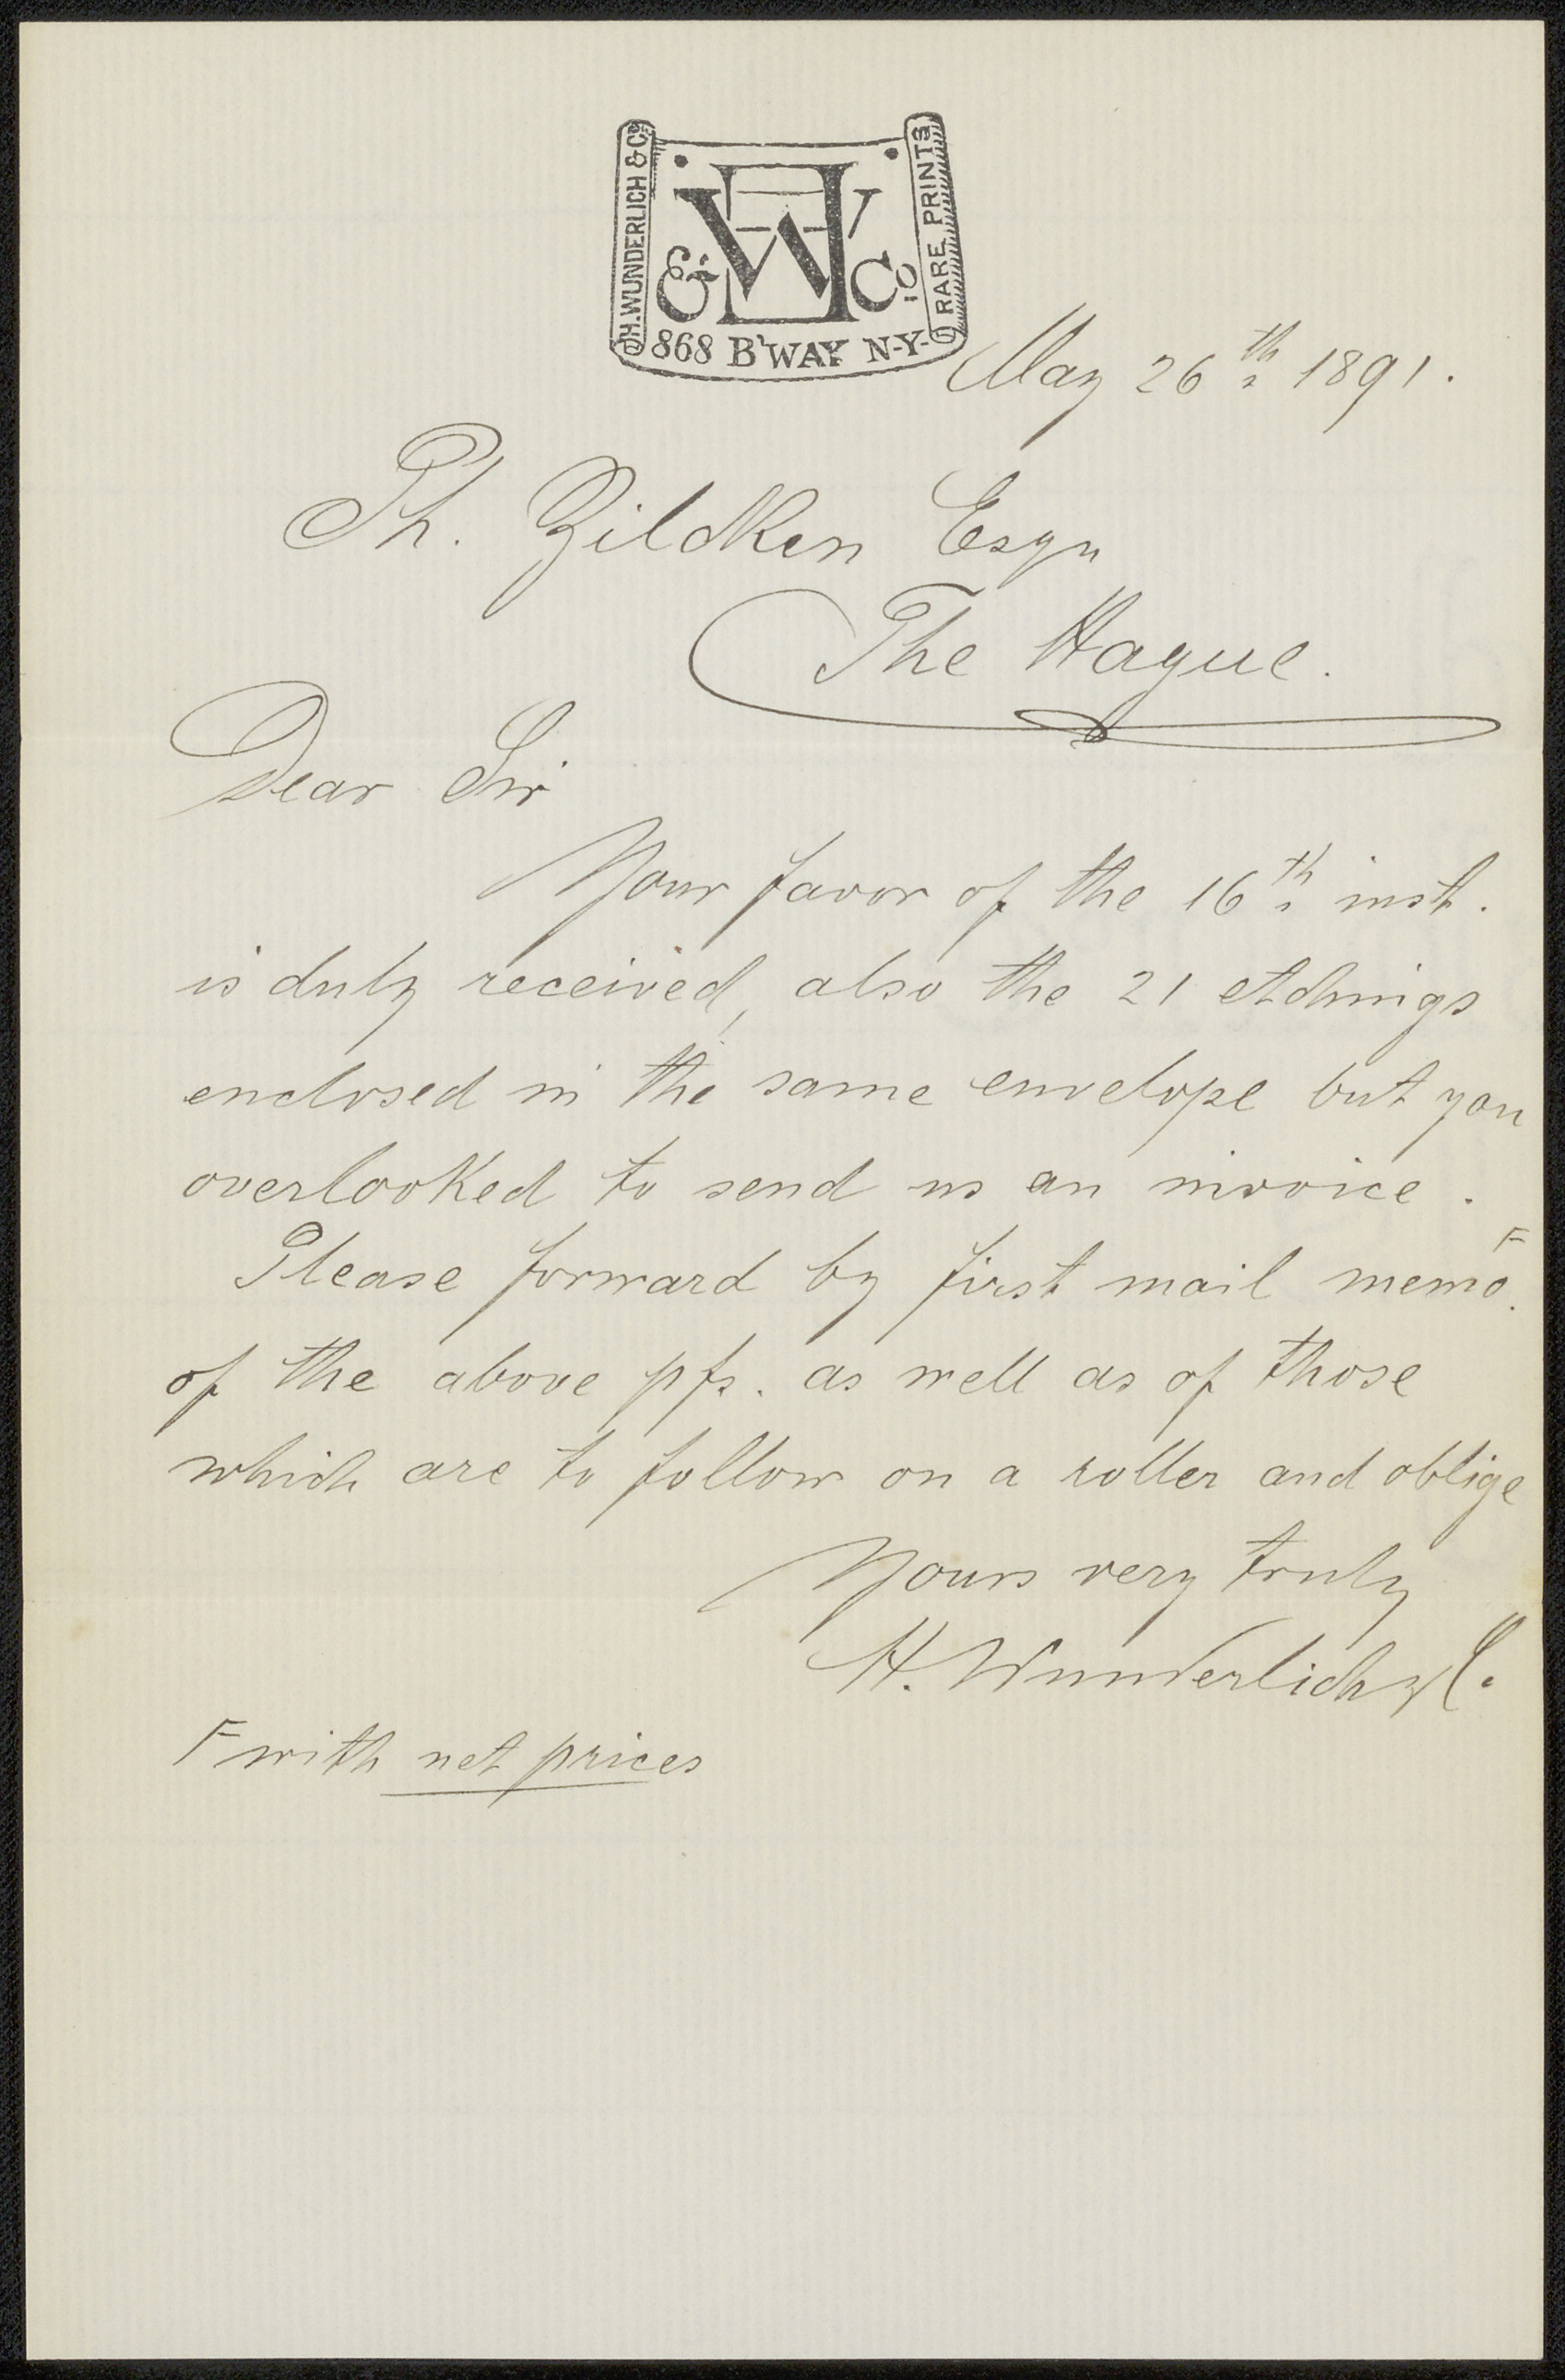 H. WUNDERLICH & Co.
RARE PRINTS
HW & Co.
868 B'WAY N-Y-
May 26th 1891.
Ph. Zildken Esqu
The Hague.
Dear Sir
Your favor of the 16th inst.
is duly received, also the 21 etchings
enclosed in the same envelope but you
overlooked to send us an invoice.
Please forward by first mail memo. F
of the above pfs. as well as of those
which are to follow on a roller and oblige
Yours very truly
H. Wunderlich & C.
F with net prices